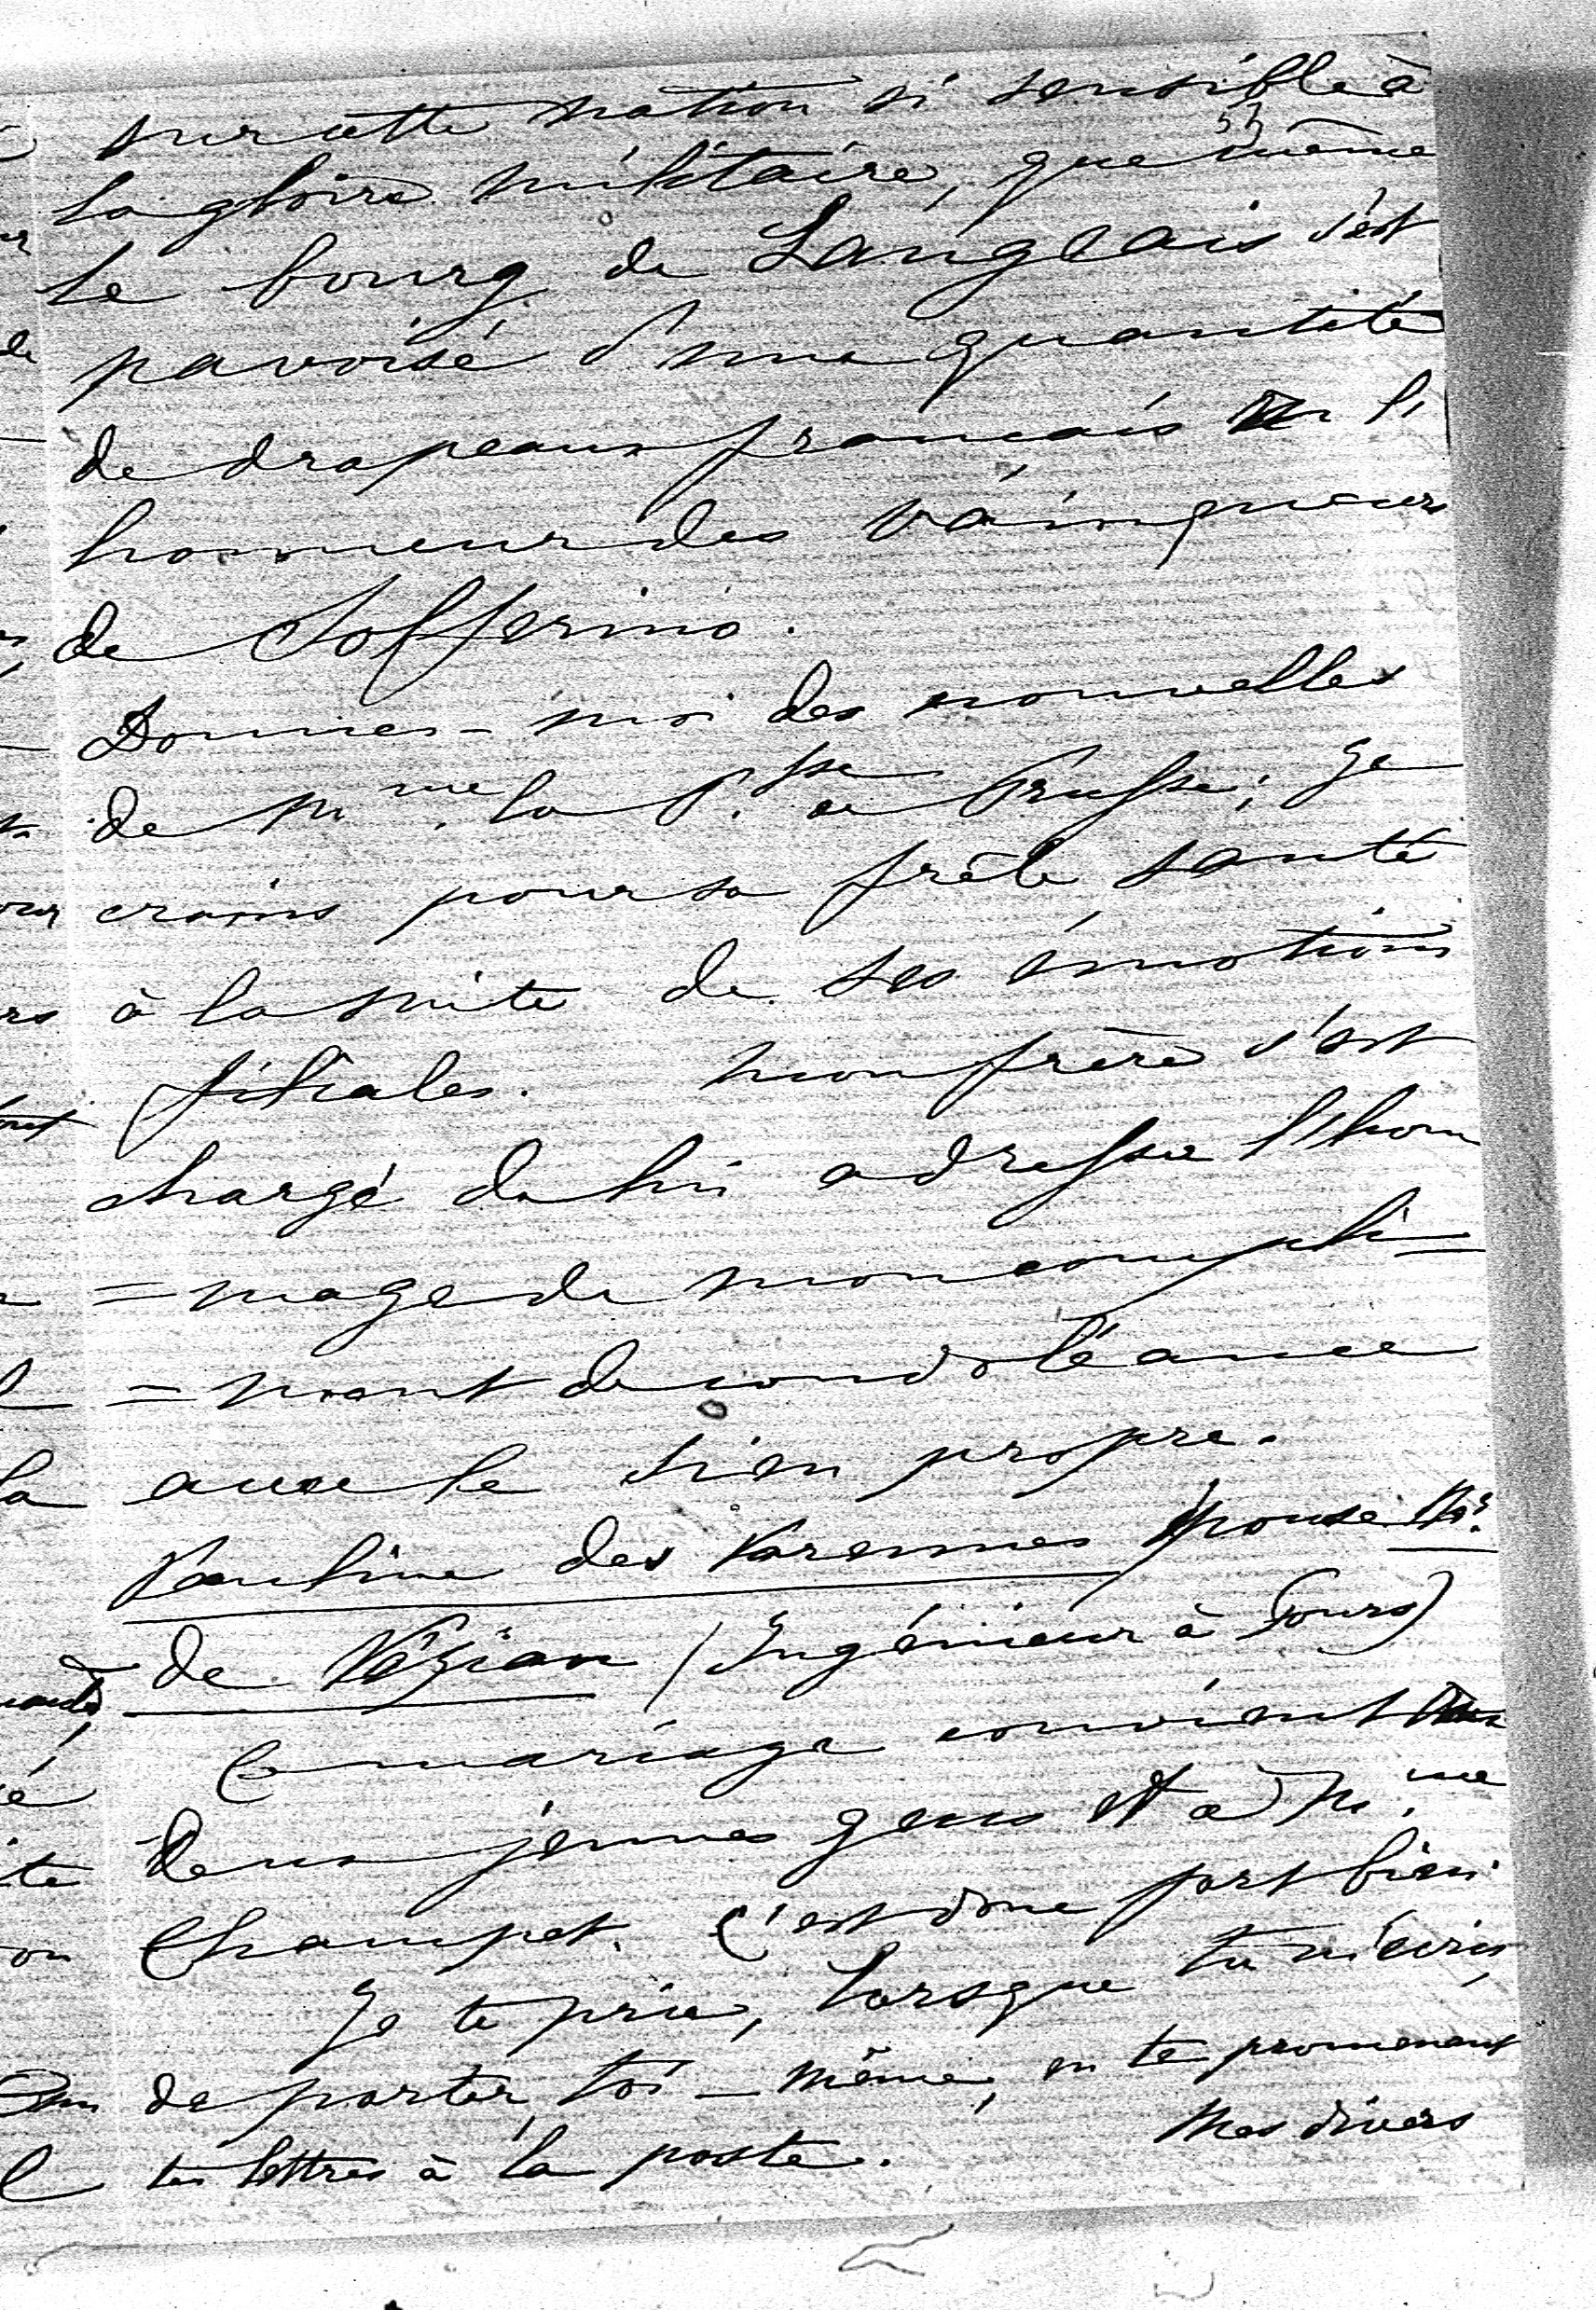 sur cette nation si sensible à
53
la gloire militaire, que même
le bourg de Langeais s'est
pavoisé d'une quantité
de drapeaux français en l'
honneur des vainqueurs
de Solferino.
Donnes-moi des nouvelles
de Mme. la Psse de Prusse; je
crains pour sa frêle santé
à la suite de ses émotions
filiales. mon frère s'est
chargé de lui adresser l'hom
=mage de mon compli=
=ment de condoléance
avec le sien propre.
Pauline des Varennes épouse Mr.
de Vézian (Ingénieur à Tours)
Ce mariage convient aux
deux jeunes gens et à Mme
Champet. C'est donc fort bien
Je te prie, lorsque tu m'écris,
de porter, toi-même, en te promenant
tes lettres à la poste. Mes divers